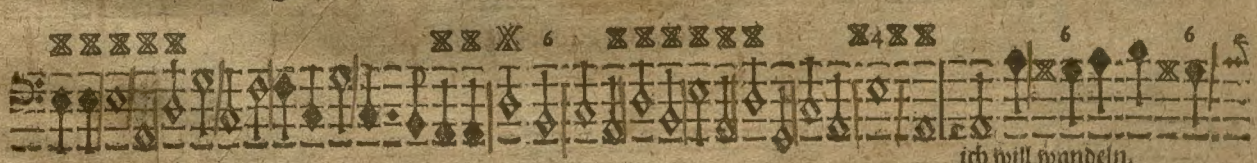 6 4 6 6
ich will wandeln.